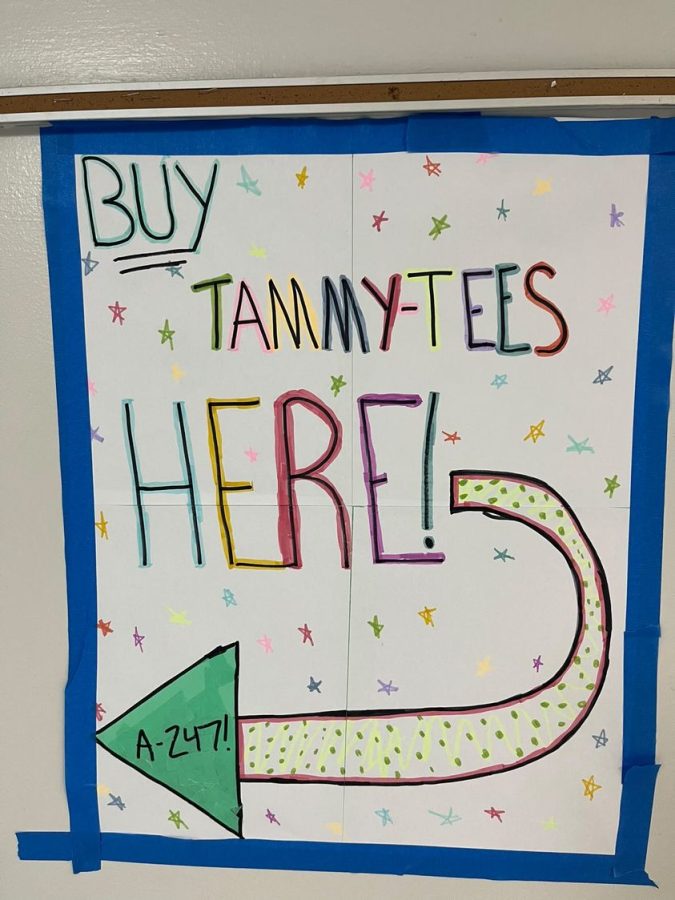 BUY
TAMMY-TEES
HERE!
A-247!